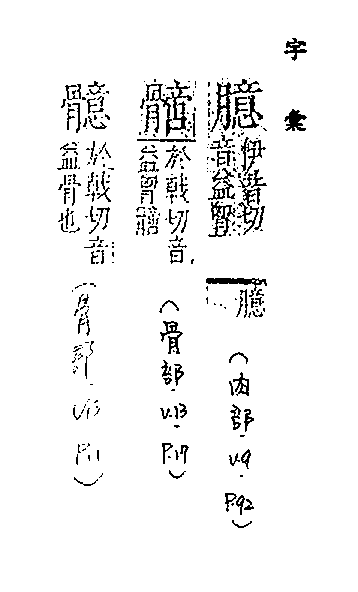 字彙
臆
伊昔切
音益胷
臆
(肉部.V.9.P.92)
於戟切音
益胷臆
(骨部.V.13.P.17)
於戟切音
益骨也
(骨部.V.13.P.11)